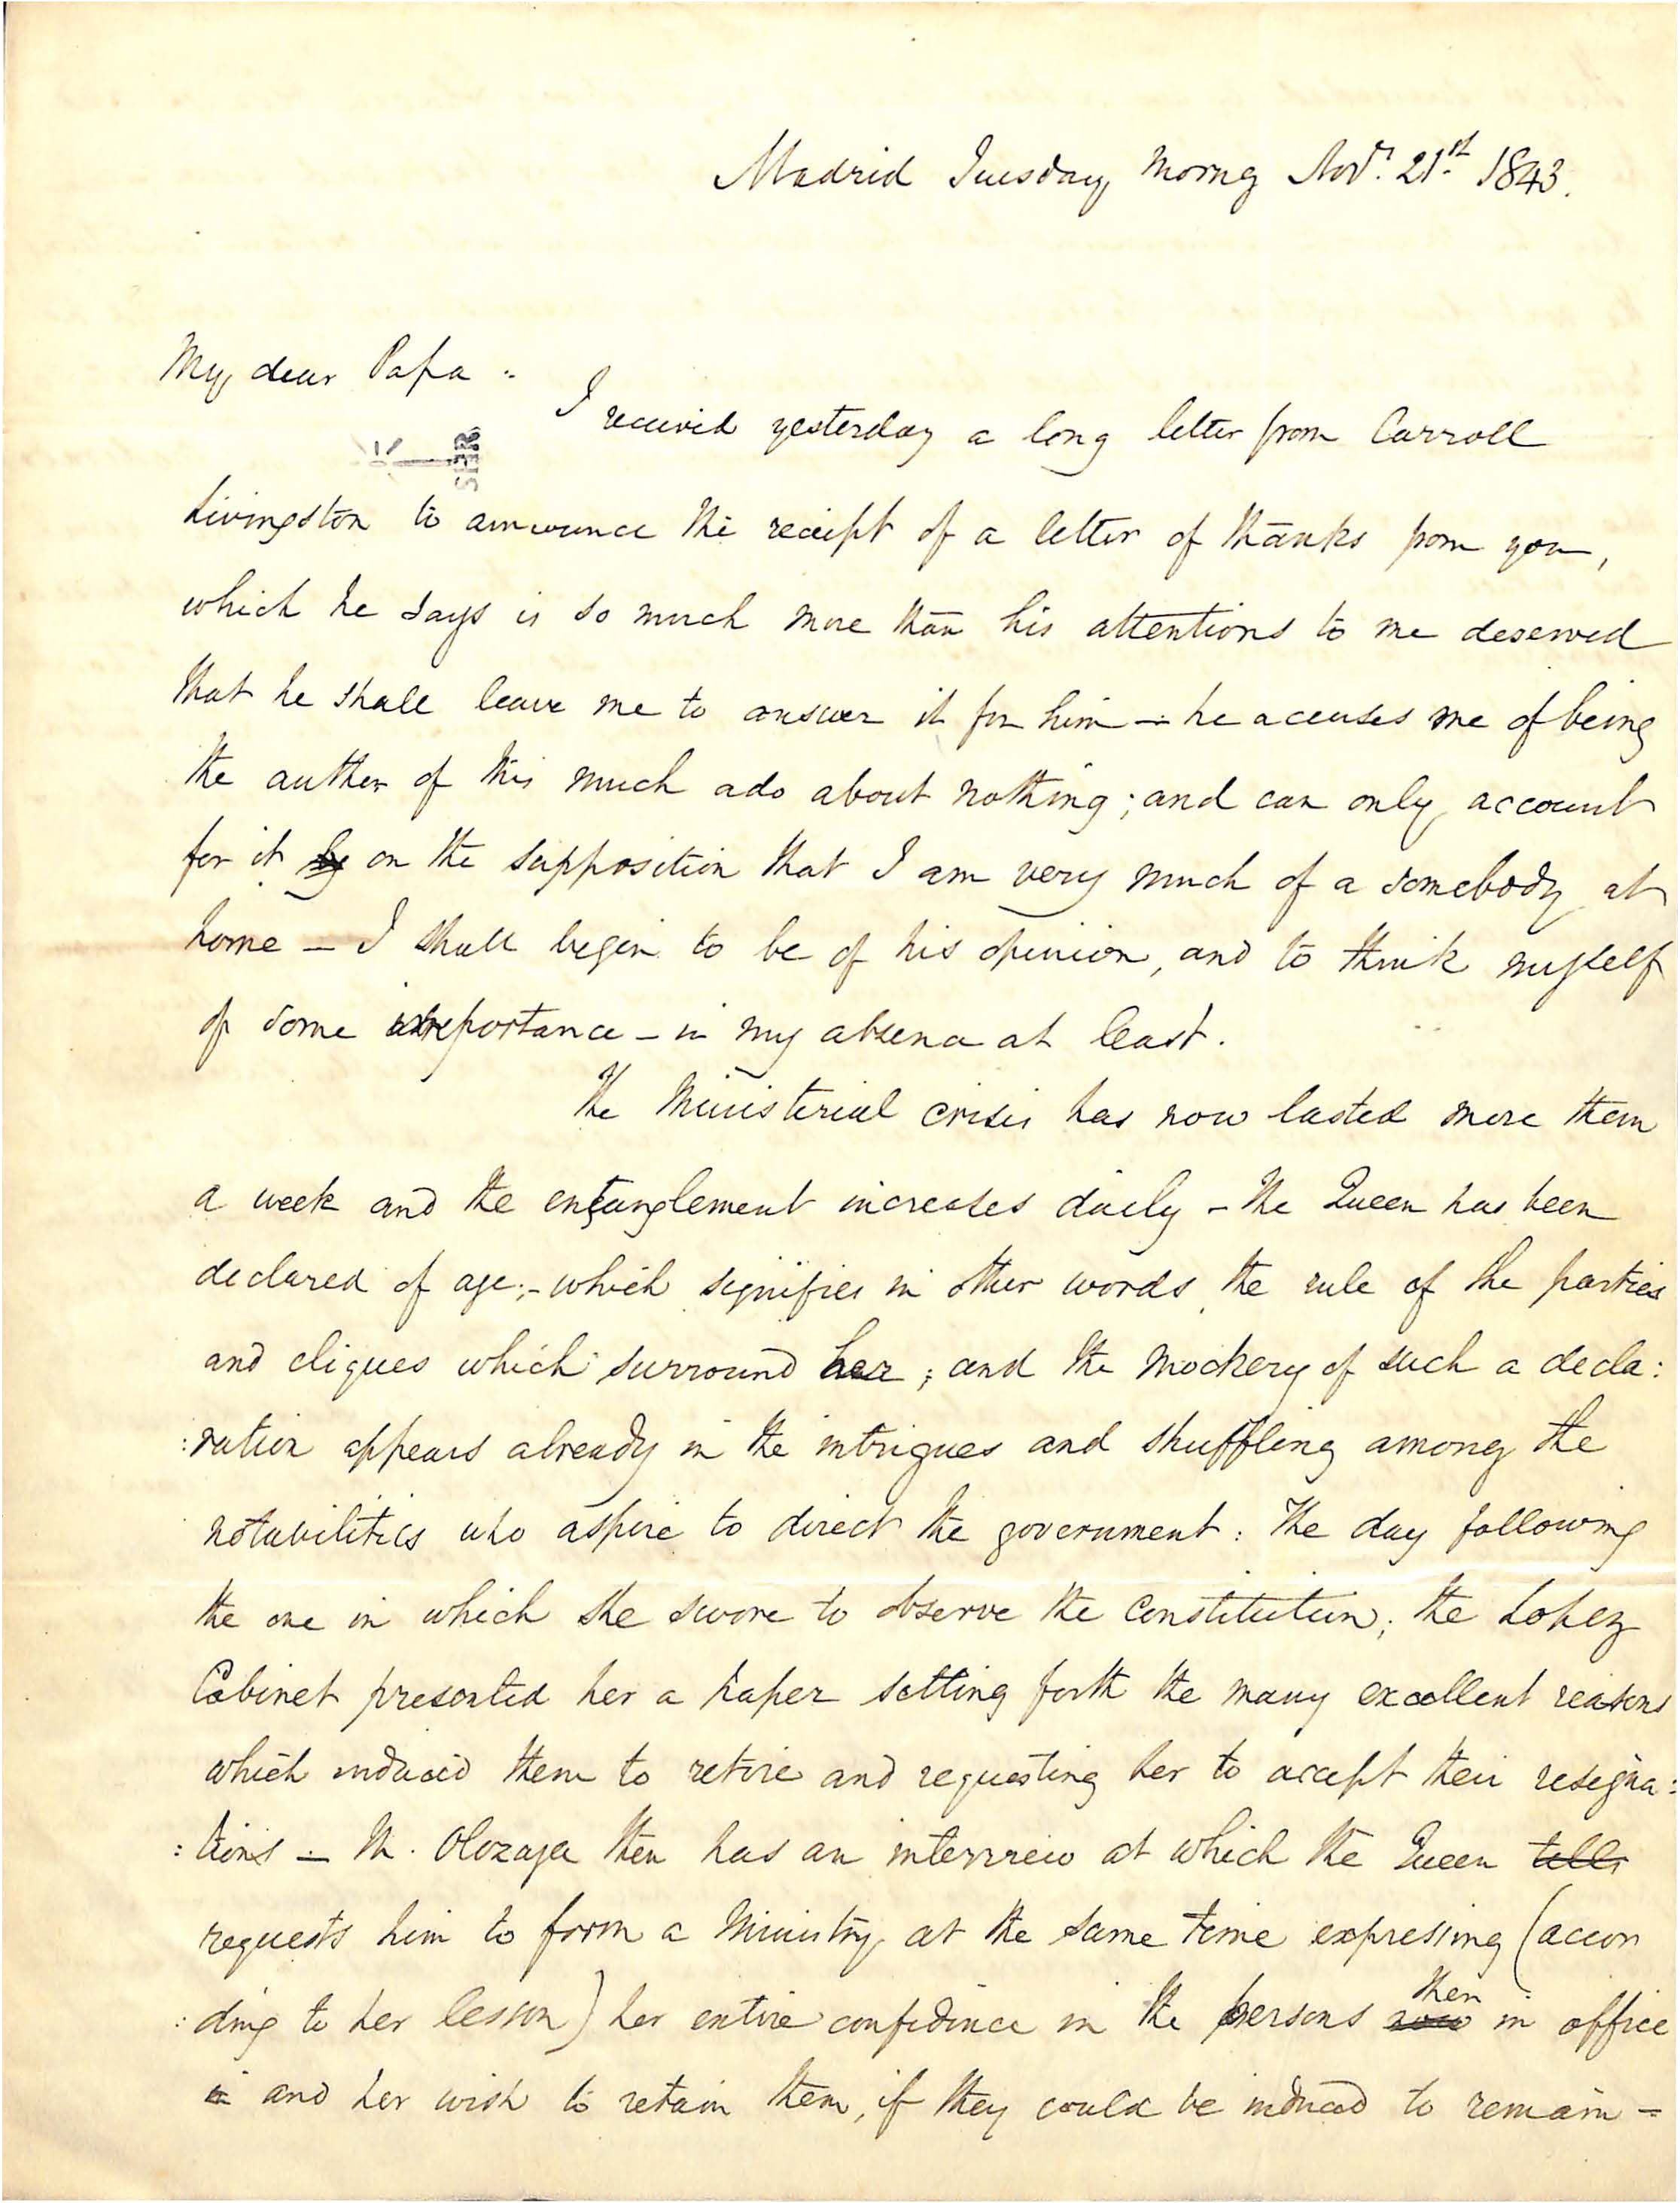 Madrid Tuesday Morng Novr. 21st. 1843.
My dear Papa -
I received yesterday a long letter from Carroll
Livingston to announce the receipt of a letter of thanks from you,
which he says is so much more than his attentions to me deserved
that he shall leave me to answer it for him - he accuses me of being
the author of this much ado about nothing; and can only account
for it by on the supposition that I am very much of a somebody at
home - I shall begin to be of his opinion, and to think myself
of some importance - in my absence at least.
The Ministerial crisis has now lasted more than
a week and the entanglement increases daily - the Queen has been
declared of age; - which signifies in other words, the rule of the parties
and cliques which surround her; and the mockery of such a decla:
:ration appears already in the intrigues and shuffling among the
notabilities who aspire to direct the government: The day following
the one in which she swore to observe the Constitution; the Lopez
Cabinet presented her a paper setting forth the many excellent reasons
which induced them to retire and requesting her to accept their resigna:
:tions - M. Olozaga then has an interview at which the Queen tells
requests him to form a Ministry, at the same time expressing (accor
:ding to her lesson) her entire confidence in the persons now then in office
in and her wish to retain them, if they could be induced to remain -